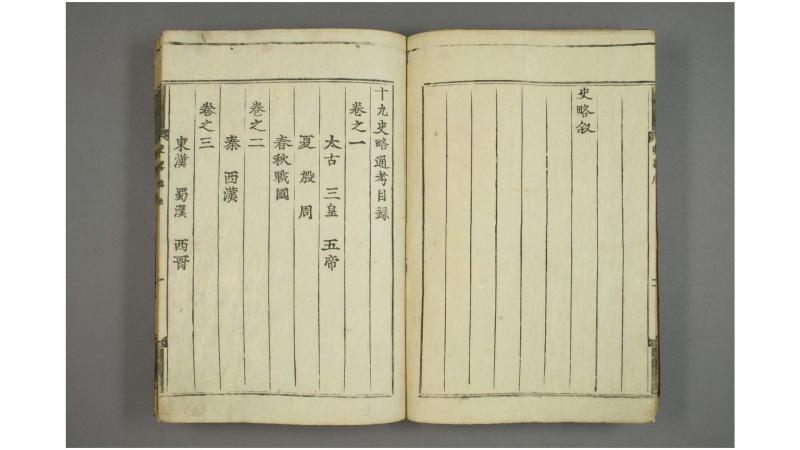 史略敘
十九史略通考目錄
卷之一
太古 三皇 五帝
夏 殷 周
春秋戰國
卷之二
秦 西漢
卷之三
東漢 蜀漢 西晋